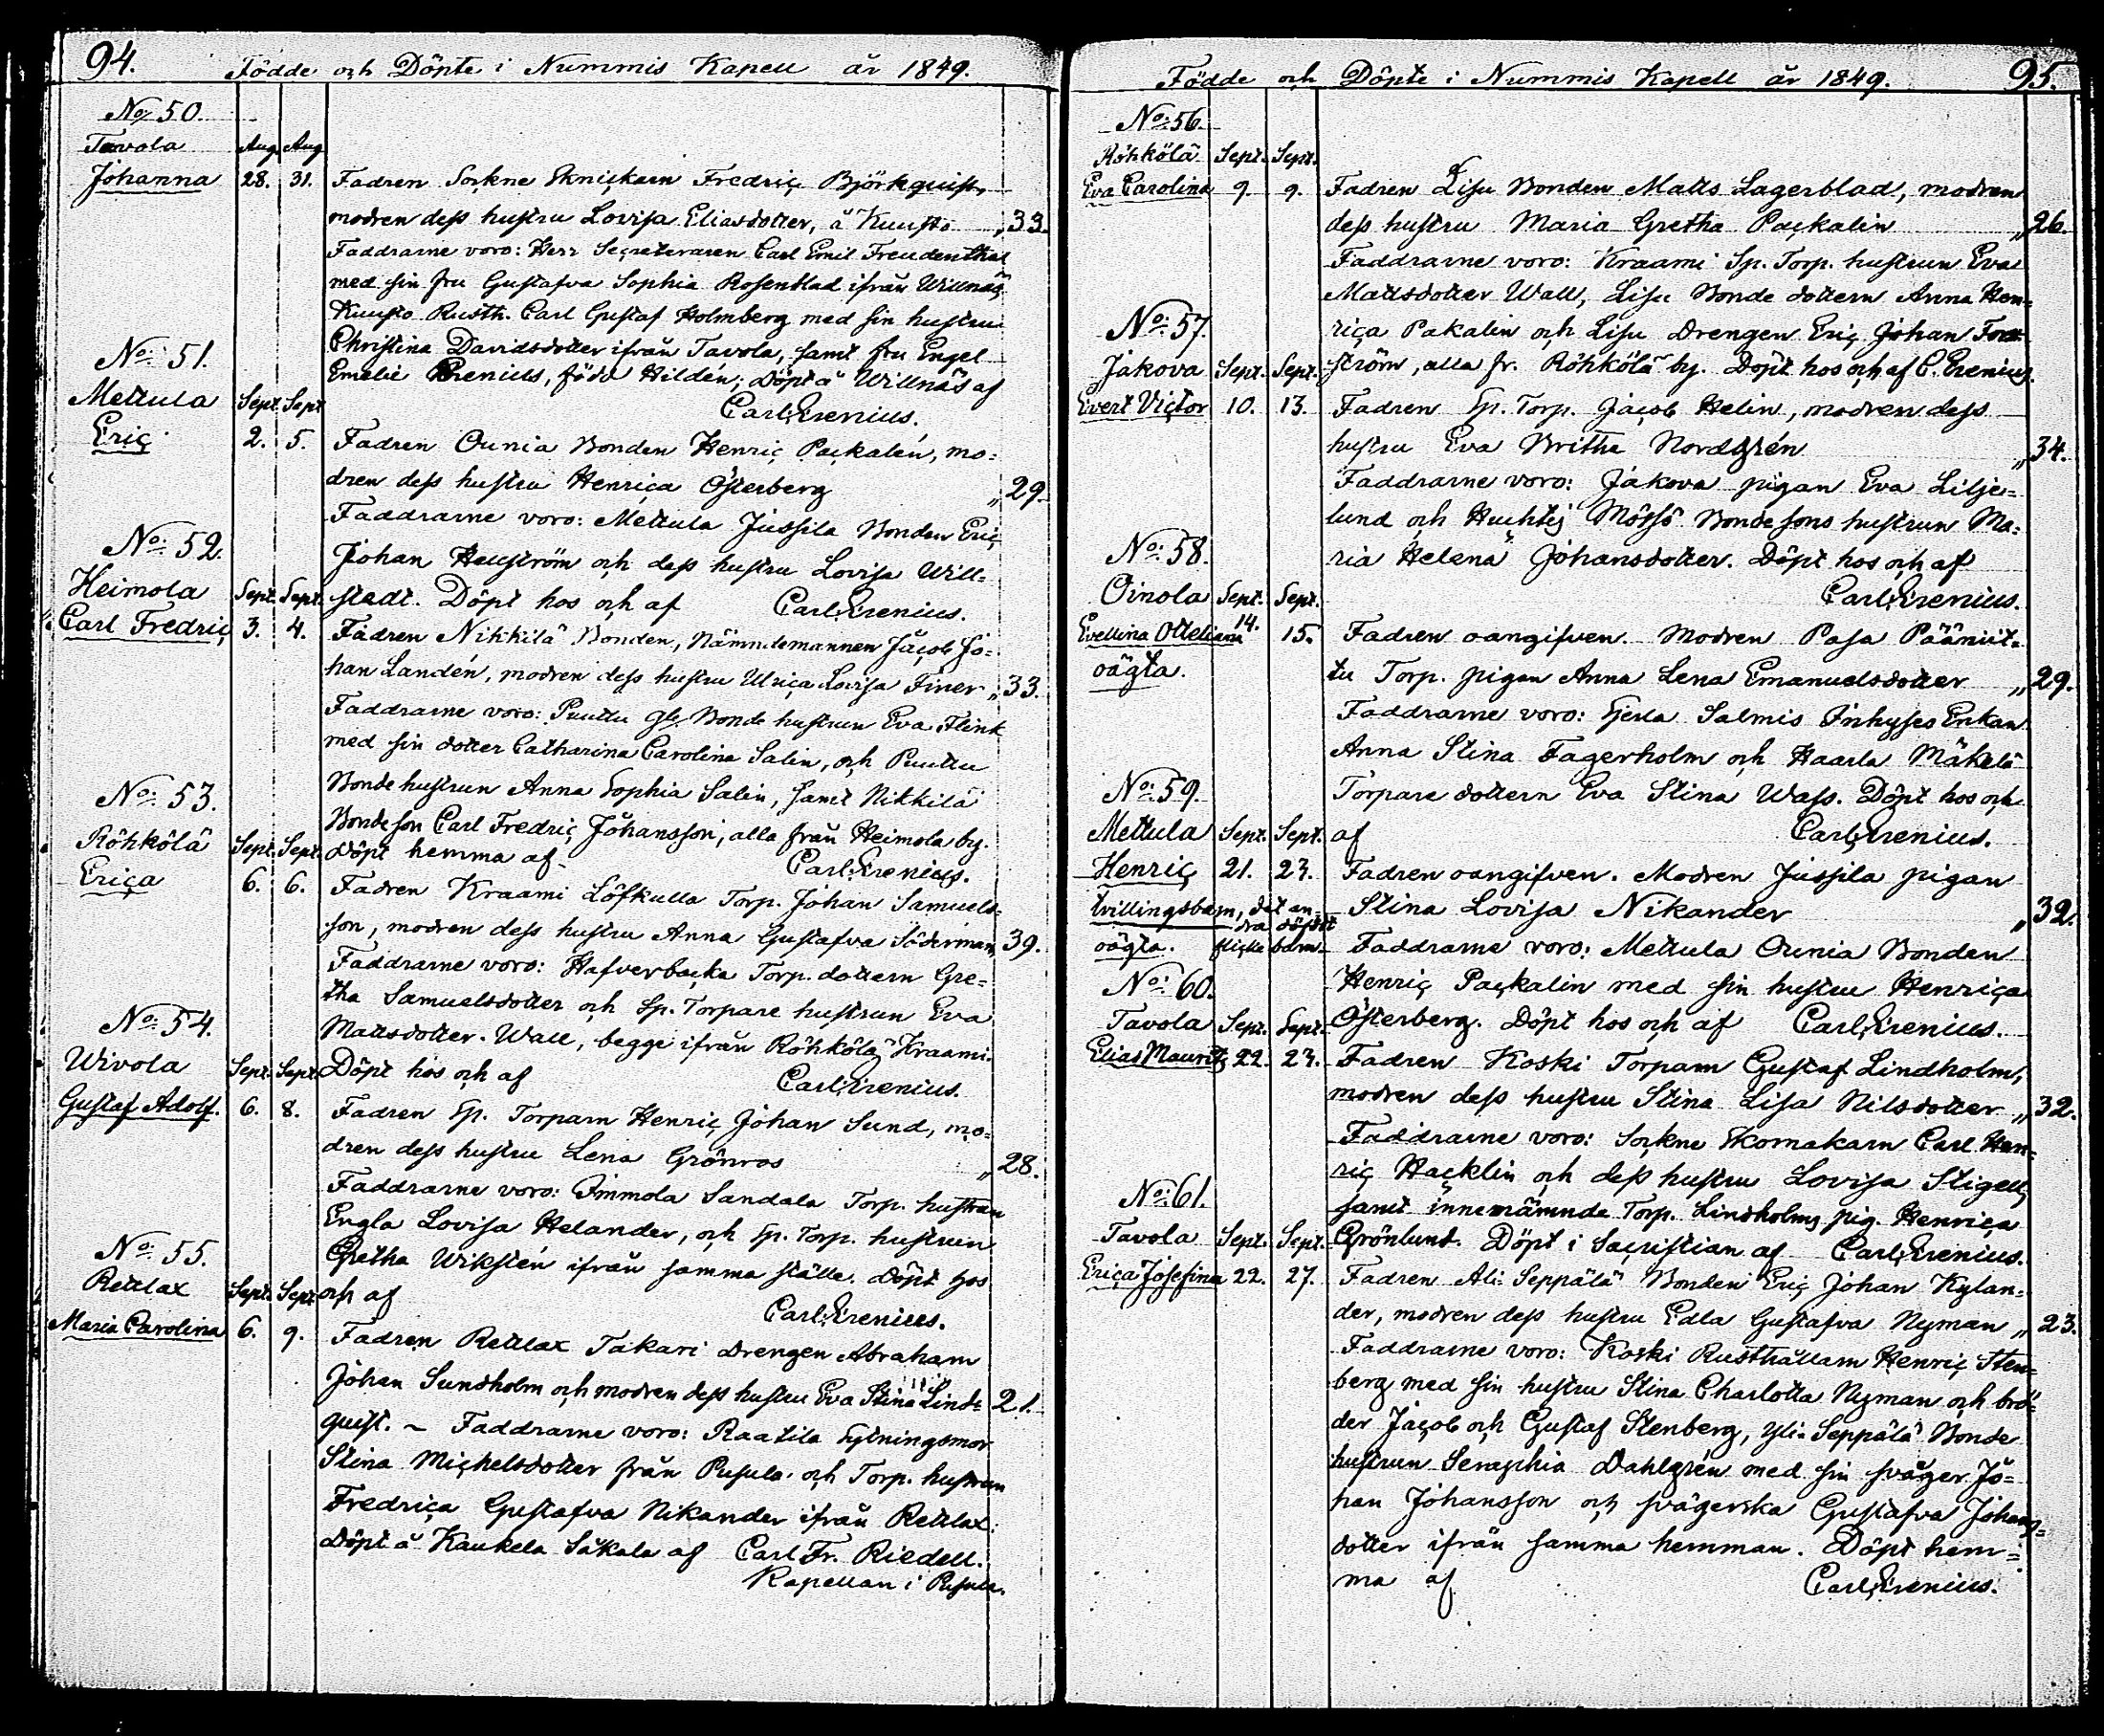 94.
Födde och Döpte i Nummis Kapell år 1849.
No: 50.
Tavola Aug. Aug.
Johanna 28. 31. Fadren Sockne Skräddaren Fredric Björkquist,
modren dess hustru Lovisa Eliasdotter, å Kuusto „ 33.
Faddrarne voro: Herr Secreteraren Carl Emil Freudenthal
med sin fru Gustafva Sophia Rosenblad ifrån Willnäs,
Kuusto Rusth. Carl Gustaf Holmberg med sin hustru
Christina Davidsdotter ifrån Tavola, samt fru Engel
Emelie Erenius, född Hildén; Döpt å Willnäs af
Carl Erenius.
No: 51.
Mettula Sept. Sept.
Eric 2. 5. Fadren Ounia Bonden Henric Packalén, mo-
dren dess hustru Henrica Österberg „ 29.
Faddrarne voro: Mettula Jussila Bonden Eric
Johan Hellström och dess hustru Lovisa Will-
stedt. Döpt hos och af Carl Erenius.
No: 52.
Heimola Sept. Sept.
Carl Fredric 3. 4. Fadren Nikkilä Bonden, Nämndemannen Jacob Jo-
han Landén, modren dess hustru Ulrica Lovisa Finer „ 33.
Faddrarne voro: Puuttu gl. Bonde hustrun Eva Flink
med sin dotter Catharina Carolina Salin, och Puuttu
Bonde hustrun Anna Sophia Salin, samt Nikkilä
Bondeson Carl Fredric Johansson, alla från Heimola by.
Döpt hemma af Carl Erenius.
No: 53.
Röhkölä Sept. Sept.
Erica 6. 6. Fadren Kraami Löfkulla Torp. Johan Samuels-
son, modren dess hustru Anna Gustafva Söderman, 39.
Faddrarne voro: Hafverbacka Torp. dottern Gre-
tha Samuelsdotter och Sp. Torpare hustrun Eva
Mattsdotter Wall, begge ifrån Röhkölä Kraami.
Döpt hos och af Carl Erenius.
No: 54.
Wivola Sept. Sept.
Gustaf Adolf. 6. 8. Fadren Sp. Torparn Henric Johan Sund, mo-
dren dess hustru Lena Grönros „ 28.
Faddrarne voro: Immola Sandala Torp. hustrun
Engla Lovisa Helander, och Sp. Torp. hustrun
Gretha Wikstén ifrån samma ställe. Döpt hos
och af Carl Erenius.
No: 55.
Retlax Sept. Sept.
Maria Carolina 6. 9. Fadren Retlax Takari Drengen Abraham
Johan Sundholm och modren dess hustru Eva Stina Lind- 21.
quist. ~ Faddrarne voro: Raatila Sytningsmor
Stina Michelsdotter från Pusula och Torp. hustrun
Fredrica Gustafva Nikander ifrån Retlax.
Döpt å Kaukela Säkala af Carl Fr. Riedell.
Kapellan i Pusula.
Födde och Döpte i Nummis Kapell år 1849. 95.
No: 56.
Röhkölä Sept. Sept.
Eva Carolina 9. 9. Fadren Lisu Bonden Matts Lagerblad, modren
dess hustru Maria Gretha Packalin „ 26.
Faddrarne voro: Kraami Sp. Torp. hustrun Eva
Mattsdotter Wall, Lisu Bonde dottern Anna Hen-
rica Pakalin och Lisu Drengen Eric Johan
ström, alla fr. Röhkölä by. Döpt hos och af C. Erenius.
No: 57.
Jakova Sept. Sept.
Evert Victor 10. 13. Fadren Sp. Torp. Jacob Helin, modren dess
hustru Eva Britha Nordgrén „ 34.
Faddrarne voro: Jakova pigan Eva Lilje-
lund och Huhti Mötsö Bonde sons hustrun Ma-
ria Helena Johansdotter. Döpt hos och af
Carl Erenius.
No: 58.
Oinola Sept. Sept.
Evellina Otteliana 14. 15. Fadren oangifven. Modren Pasa Pääniit-
oägta. tu Torp. pigan Anna Lena Emanuelsdotter „ 29.
Faddrarne voro: Gerla Salmis Inhyses Enkan
Anna Stina Fagerholm och Haarla Mäkelä
Torpare dottern Eva Stina Wass. Döpt hos och
af Carl Erenius.
No: 59.
Mettula Sept. Sept.
Henric 21. 23. Fadren oangifven. Modren Jussila pigan
tvillingsbarn, det an- Stina Lovisa Nikander „ 32.
dra dödfödt
oägta. flicke barn. Faddrarne voro: Mettula Ounia Bonden
Henric Packalin med sin hustru Henrica
Österberg. Döpt hos och af Carl Erenius.
No: 60.
Tavola Sept. Sept.
Elias Mauritz 22. 23. Fadren Koski Torparn Gustaf Lindholm,
modren dess hustru Stina Lisa Nilsdotter „ 32.
Faddrarne voro: Sockne Skomakarn Carl Hen-
ric Hacklin och dess hustru Lovisa Stigell,
samt innenämnde Torp. Lindholms pig. Henrica
Grönlund. Döpt i Sacristian af Carl Erenius.
No: 61.
Tavola Sept. Sept.
Erica Josefina 22. 27. Fadren Ali Seppälä Bonden Eric Johan Kylan-
der, modren dess hustru Edla Gustafva Nyman „ 23.
Faddrarne voro: Koski Rusthållarn Henric Sten-
berg med sin hustru Stina Charlotta Nyman och brö-
der Jacob och Gustaf Stenberg, Yli Seppälä Bonde
hustrun Seraphia Dahlgrén med sin svåger Jo-
han Johansson och svägerska Gustafva Johans-
dotter ifrån samma hemman. Döpt hem-
ma af Carl Erenius.